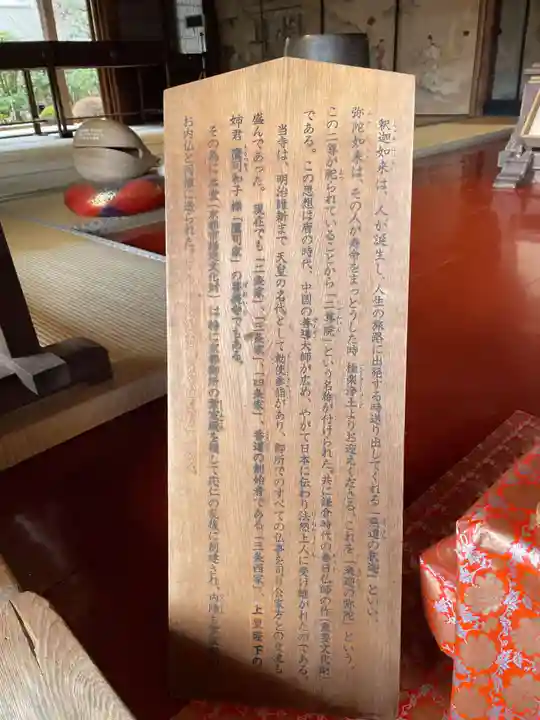 釈迦如来は、人が誕生し、人生の旅路に出発する時送り出してくれる「発遣の釈迦」といい、
弥陀如来は、その人が寿命をまっとうした時 極楽浄土よりお迎えくださる、これを「来迎の弥陀」という。
この二尊が祀られていることから「二尊院」という名称が付けられた。共に鎌倉時代の春日仏師の作(重要文化財)
である。この思想は唐の時代、中国の善導大師が広め、やがて日本に伝わり法然上人に受け継がれたのである。
当寺は、明治維新まで 天皇の名代として勅使参詣があり、御所でのすべての仏事を司り公家方との交流も
盛んであった。現在でも「二条家」、「三条家」、「四条家」、香道の創始者である「三条西家」、上皇陛下の
姉君 鷹司和子様「鷹司家」の菩提寺である。
その為に 本堂(京都市指定文化財)は特に京都御所の紫宸殿を模して応仁の乱後に創建され、内陣も
お内仏と同様に造られた。